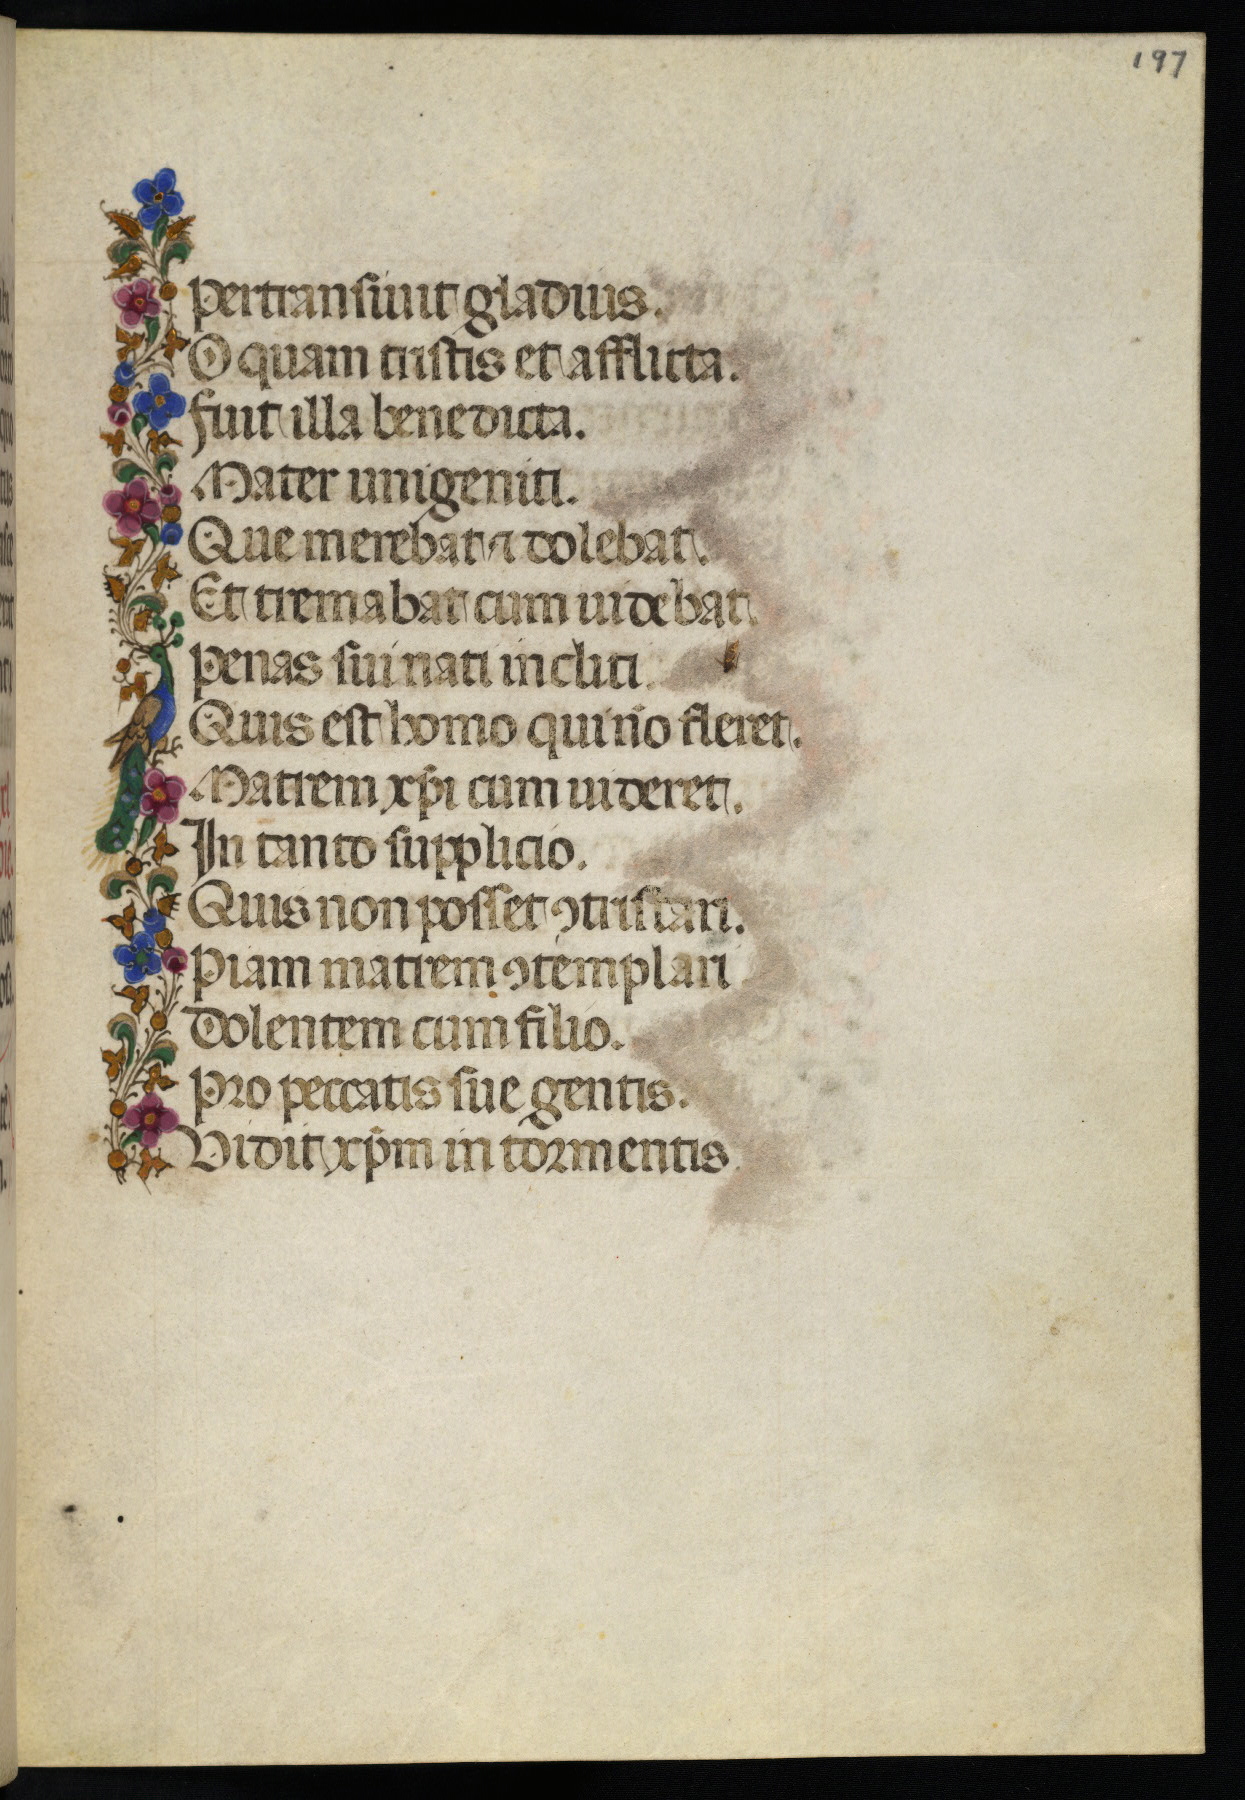 197
pertransiuit gladius.
O quam tristis et afflicta.
fuit illa benedicta.
Mater unigeniti.
Que merebat ⁊ dolebat.
Et tremabat cum uidebat
penas sui nati incliti
Quis est homo qui nõ fleret.
Matrem xp̃i cum uideret.
In tanto supplicio.
Quis non posset ꝯtristari.
Piam matrem ꝯtemplari
dolentem cum filio.
Pro peccatis sue gentis.
Vidit xp̃m in tormentis